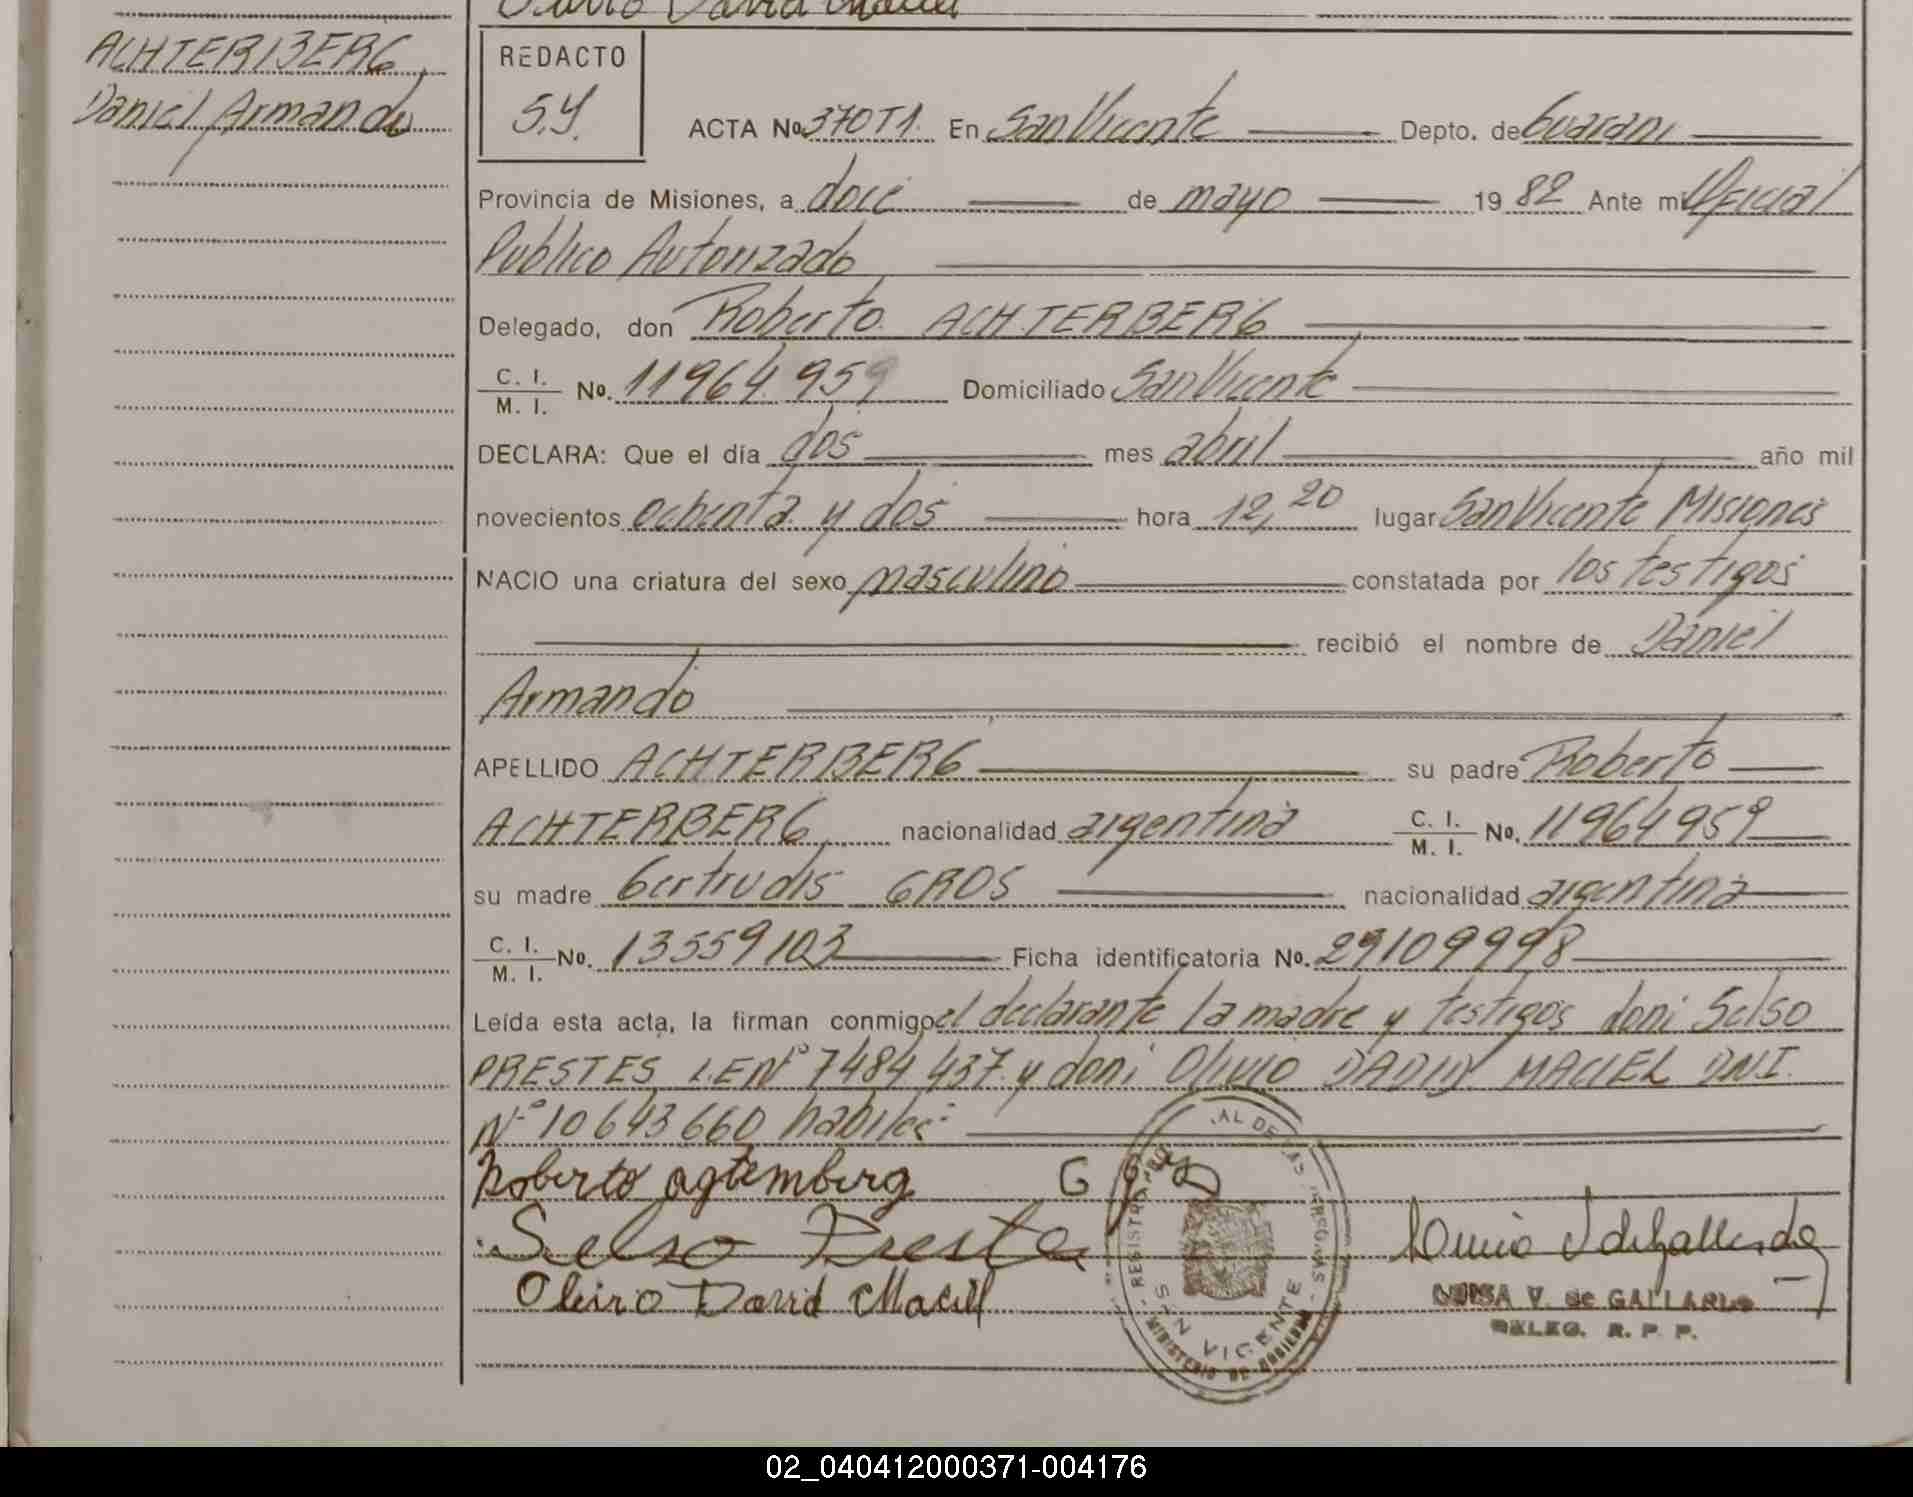 David Maciel
ACHTERBERG,
Daniel Armando
REDACTO
S.Y.
ACTA No 370T1. En San Vicente Depto. de Guarani
Provincia de Misiones, a doce de mayo 19 82 Ante mi Oficial
Publico Autorizado
Delegado, don Roberto ACHTERBERG
C. I.
M. I. No. 11964.959 Domiciliado San Vicente
DECLARA: Que el día dos mes abril año mil
novecientos ochenta y dos hora 12,20 lugar San Vicente Misiones
NACIO una criatura del sexo masculino constatada por los testigos
recibió el nombre de Daniel
Armando
APELLIDO ACHTERBERG su padre Roberto
ACHTERBERG, nacionalidad argentina C. I. M. I. No. 11964959
su madre Gertrudis GROS nacionalidad argentina
C. I.
M. I. No. 13559103 Ficha identificatoria No. 29109998
Leída esta acta, la firman conmigo el declarante la madre y testigos don: Selso
PRESTES L.E Nº 7484437. y don: Olivio DAVID MACIEL DNI.
Nº 10643660 habiles:
Roberto agtemberg G
Selso Preste
Oliviro David Maciel
LUISA V. de GALLARDO
DELEG. R. P. P.
SAN VICENTE
02_040412000371-004176